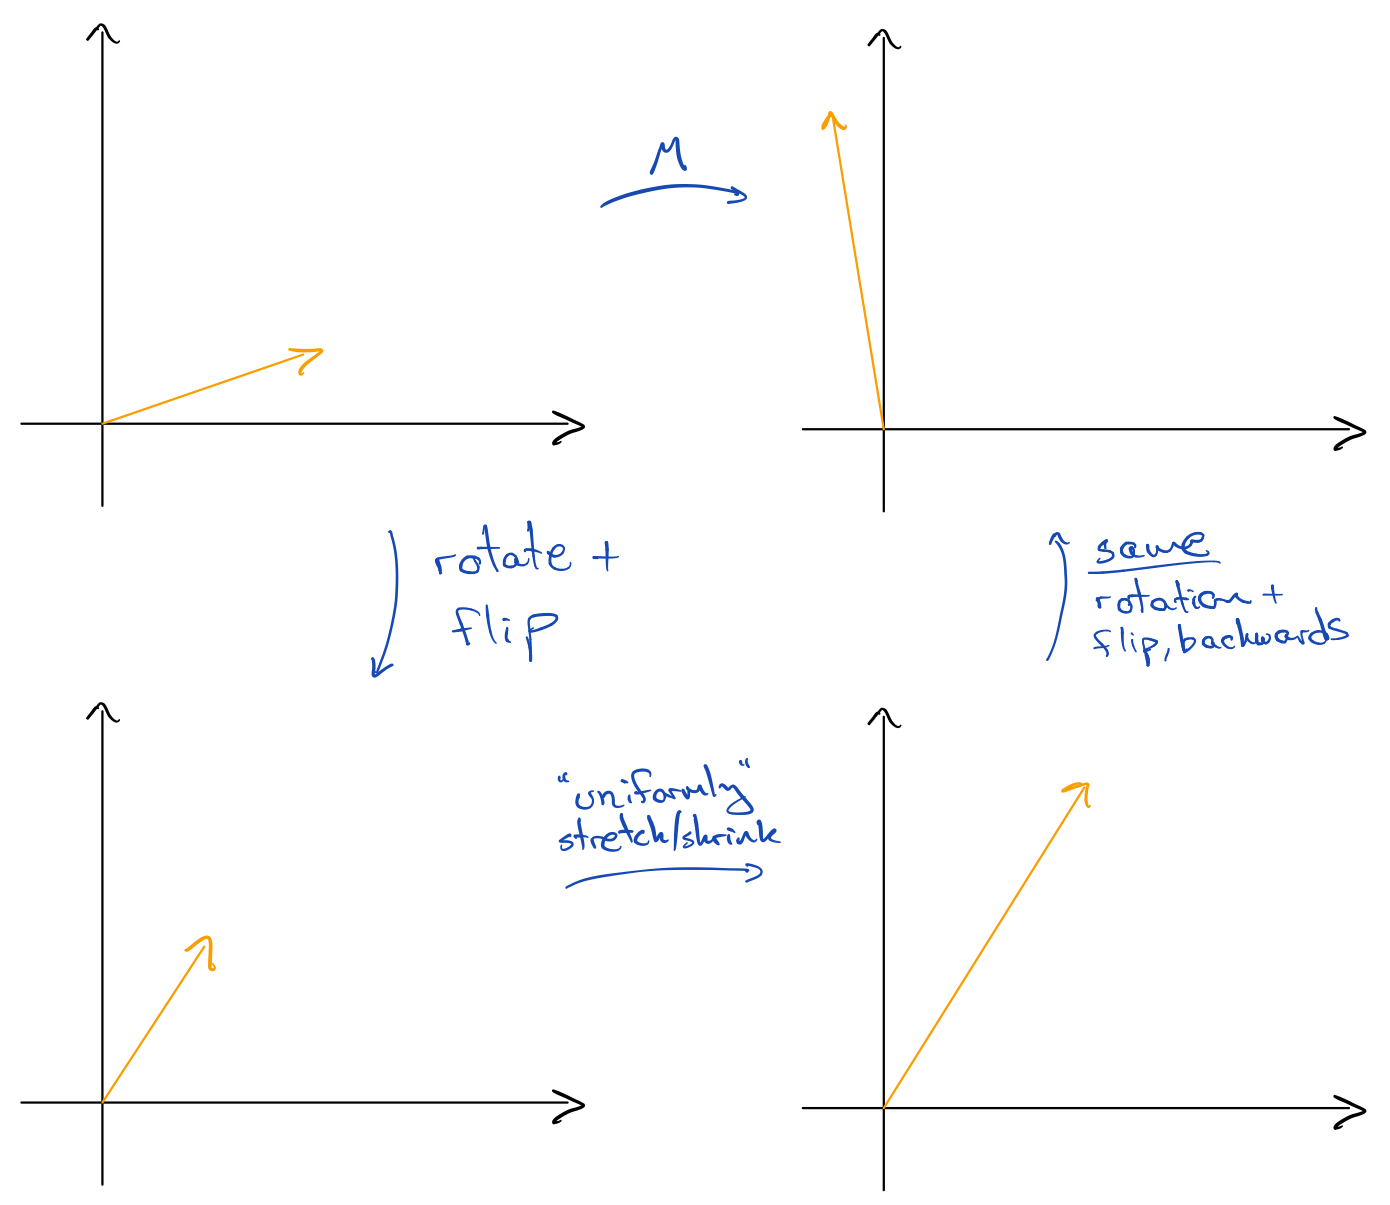 M
rotate +
flip
same
rotation +
flip, backwards
"uniformly"
stretch/shrink